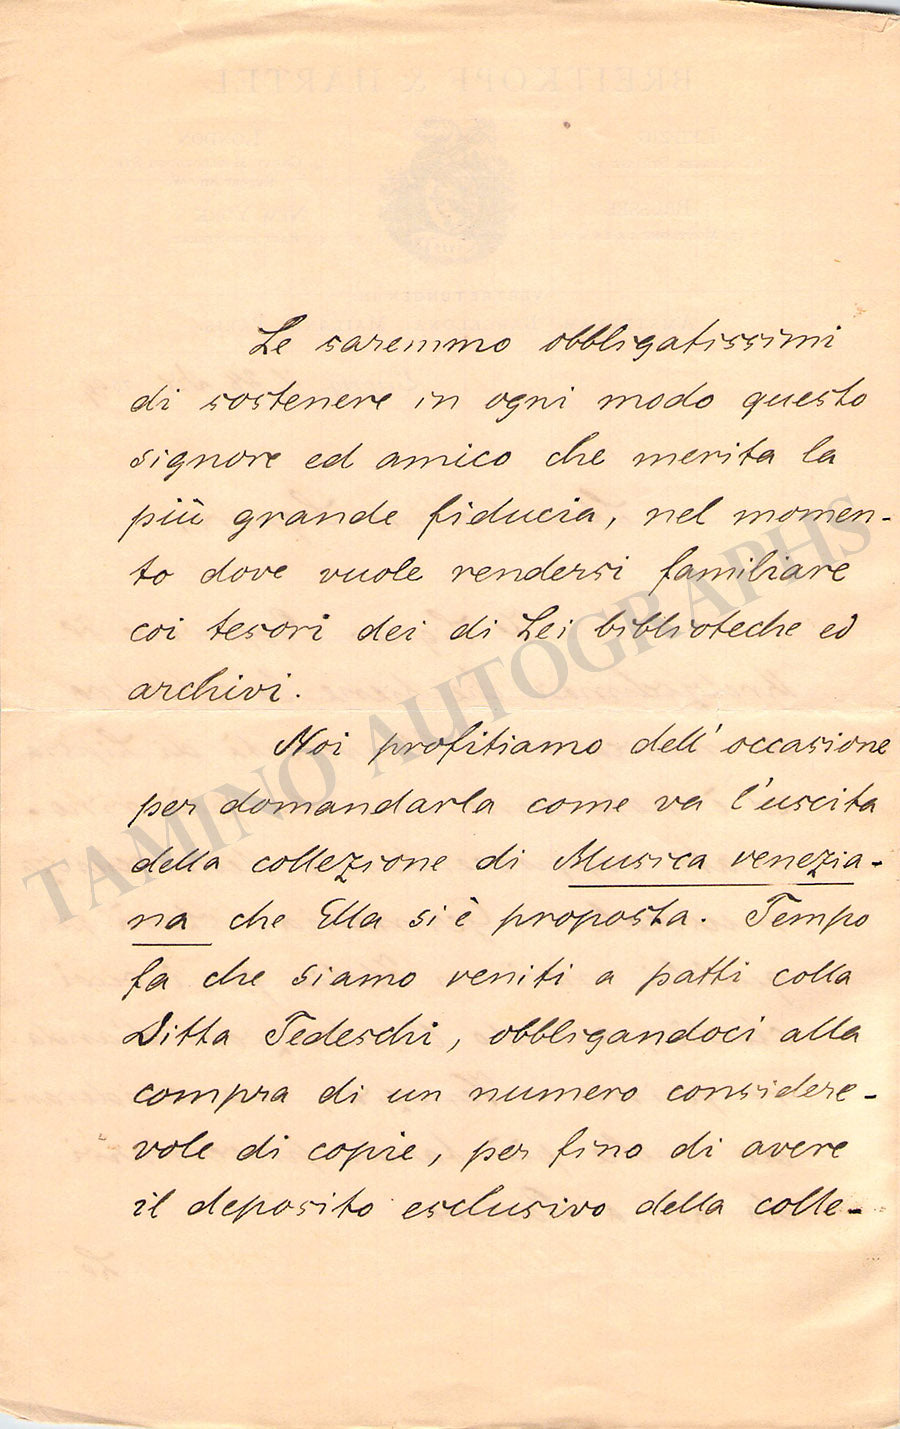 Le saremmo obbligatissimi
di sostenere in ogni modo questo
signore ed amico che merita la
più grande fiducia, nel momen-
to dove vuole rendersi familiare
coi tesori dei di Lei biblioteche ed
archivi.
Noi profitiamo dell'occasione
per domandarla come va l'uscita
della collezione di Musica venezia-
na che Ella si è proposta. Tempo
fa che siamo veniti a patti colla
Ditta Tedeschi, obbligandoci alla
compra di un numero considere-
vole di copie, per fino di avere
il deposito esclusivo della colle-
TAMINO AUTOGRAPHS
BREITKOPF & HÄRTEL
LONDON
NEW YORK